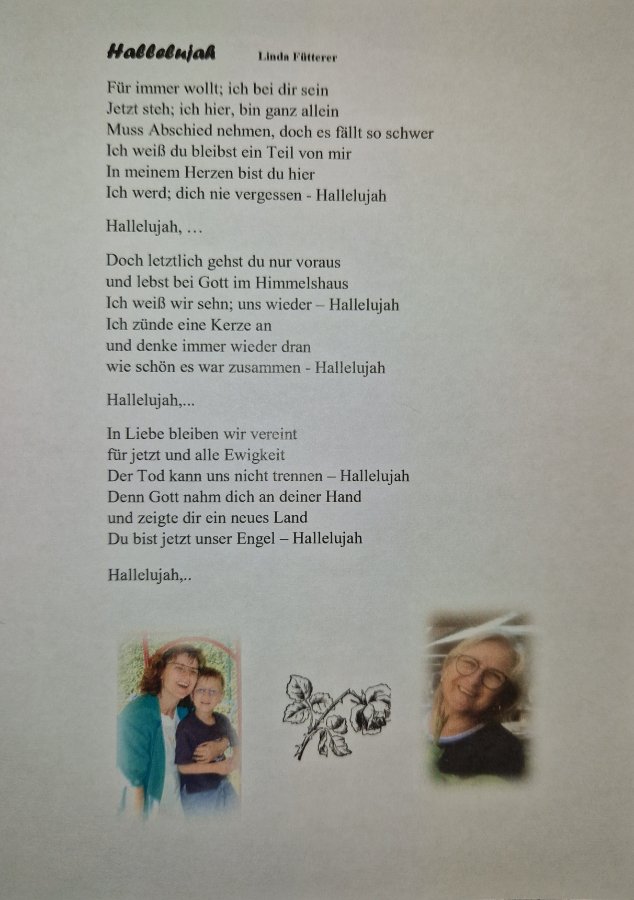 Hallelujah Linda Fütterer
Für immer wollt; ich bei dir sein
Jetzt steh; ich hier, bin ganz allein
Muss Abschied nehmen, doch es fällt so schwer
Ich weiß du bleibst ein Teil von mir
In meinem Herzen bist du hier
Ich werd; dich nie vergessen - Hallelujah
Hallelujah, …
Doch letztlich gehst du nur voraus
und lebst bei Gott im Himmelshaus
Ich weiß wir sehn; uns wieder – Hallelujah
Ich zünde eine Kerze an
und denke immer wieder dran
wie schön es war zusammen - Hallelujah
Hallelujah,...
In Liebe bleiben wir vereint
für jetzt und alle Ewigkeit
Der Tod kann uns nicht trennen – Hallelujah
Denn Gott nahm dich an deiner Hand
und zeigte dir ein neues Land
Du bist jetzt unser Engel – Hallelujah
Hallelujah,..